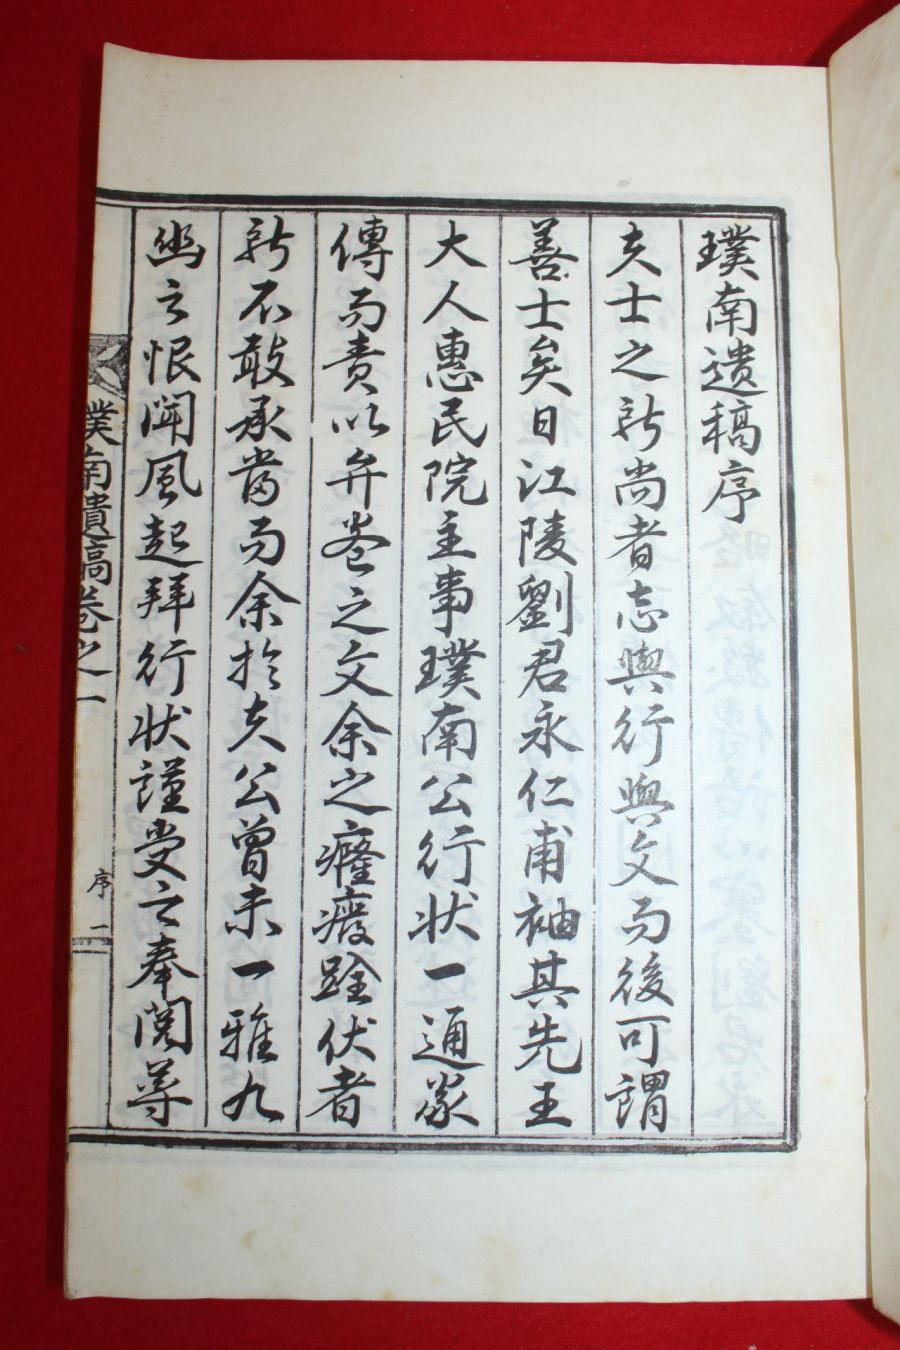 璞南遺稿序
夫士之所尚者志與行與文而後可謂
善士矣日江陵劉君永仁甫袖其先王
大人惠民院主事璞南公行狀一通家
傳而責以弁卷之文余之癃癈跧伏者
所不敢承當而余於夫公曾未一雅九
幽之恨聞風起拜行狀謹受之奉閱尋
璞南遺稿卷之一
序
一